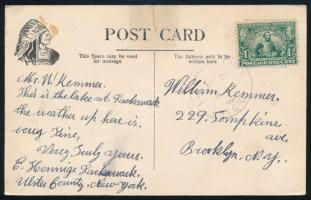 POST CARD
This Space may be used
for message.
The Address only to be
written here
1 POSTAGE ONE CENT 1
Mr. W. Kemmer.
This is the lake at Lackawack
the weather up here is
very fine,
Very Truly yours.
E. Hennige Lackawack.
Ulster County, New York.
William Kemmer.
229 Tompkins
ave,
Brooklyn. N.Y.